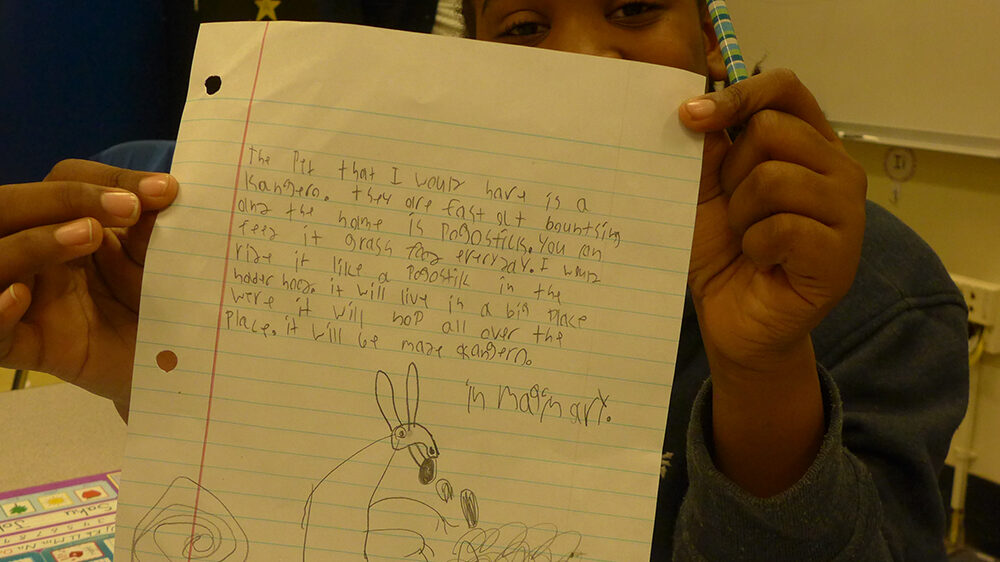 the Pit that I woulz have is a
Kangero. they are fast qt bountsing
anz the name is Pogosticks. You can
feez it grash fooz everyzay. I woulz
rize it like a Pogostik in the
hodder hooz. it will live in a big Place
were it will hop all over the
Place. it will be maze kangero.
in magin ary.
Saku